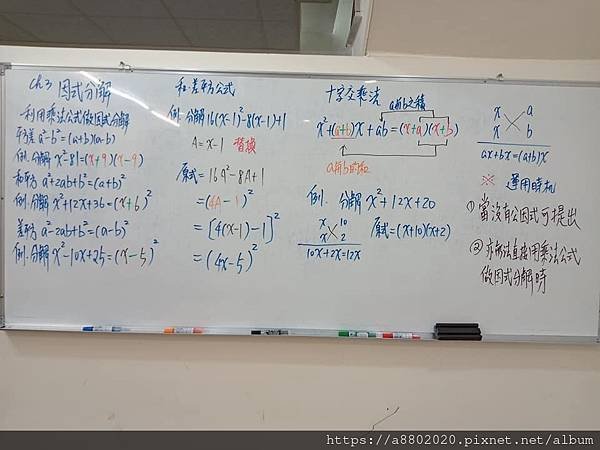 ch3 因式分解
利用乘法公式做因式分解
平方差 a²-b²=(a+b)(a-b)
例. 分解 x²-81=(x+9)(x-9)
和平方 a²+2ab+b²=(a+b)²
例. 分解 x²+12x+36=(x+6)²
差平方 a²-2ab+b²=(a-b)²
例. 分解 x²-10x+25=(x-5)²
和差平方公式
例. 分解 16(x-1)²-8(x-1)+1
A=x-1 替換
原式=16A²-8A+1
=(4A-1)²
=[4(x-1)-1]²
=(4x-5)²
十字交乘法
a與b之積
x²+(a+b)x+ab=(x+a)(x+b)
a與b的和
例. 分解 x²+12x+20
x 10
x 2
10x+2x=12x
原式=(x+10)(x+2)
x a
x b
ax+bx=(a+b)x
※ 運用時机
①當沒有公因式可提出
②非無法直接用乘法公式
做因式分解時
https://a8802020.pixnet.net/album